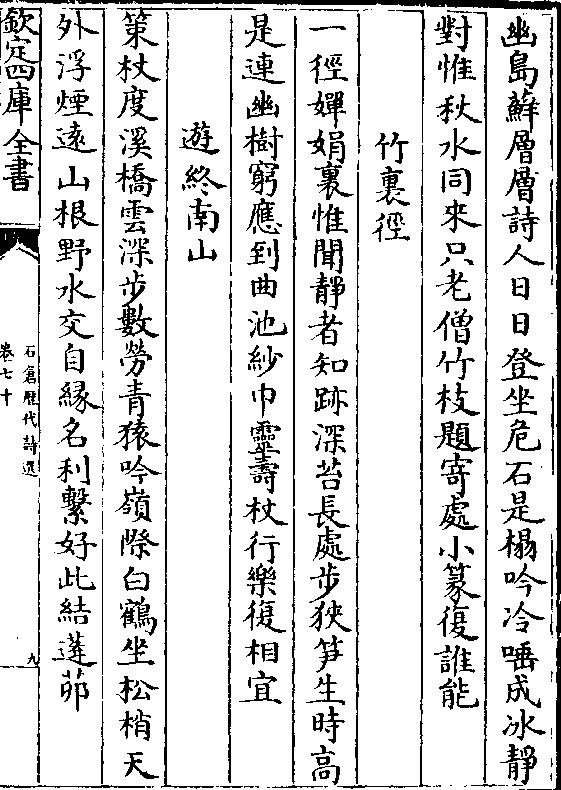 幽島蘚層層詩人日日登坐危石是榻吟冷唾成冰靜
對惟秋水同來只老僧竹枝題寄處小篆復誰能
竹裏徑
一徑嬋娟裏惟聞靜者知跡深苔長處步狹笋生時高
是連幽樹窮應到曲池紗巾靈壽杖行樂復相宜
遊終南山
策杖度溪橋雲深步數勞青猿吟嶺際白鶴坐松梢天
外浮煙遠山根野水交自緣名利繫好此結蓮茆
欽定四庫全書
石倉歷代詩選
卷七十
九